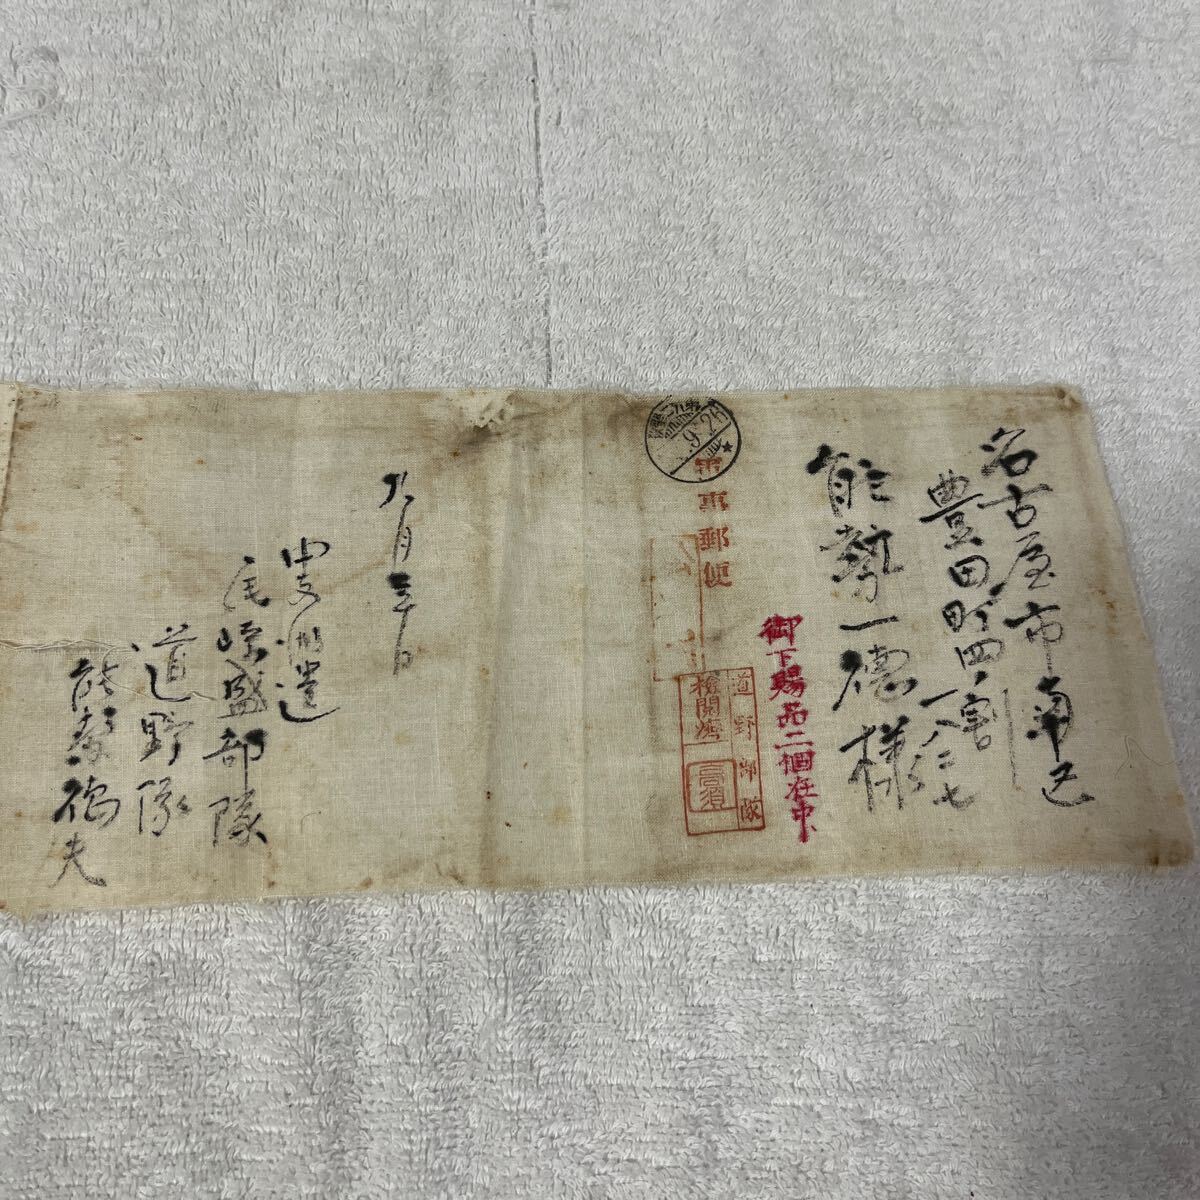 名古屋市南区
豊田町四ノ割
一八二七
能勢一徳様
御下賜品二個在中
軍事郵便
道野部隊
検閲済
高須
9.24
九月三十日
中支派遣
尾崎盛部隊
道野隊
能勢徳夫